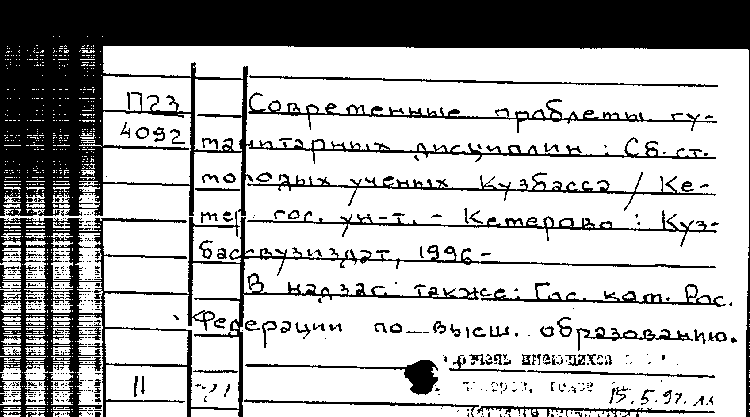 П23 Современные проблемы гу-
4092 манитарных дисциплин : Сб. ст.
молодых ученых Кузбасса / Ке-
мер. гос. ун-т. - Кемерово : Куз-
бассвузиздат, 1996 -
В надзаг. также: Гос. ком. Рос.
Федерации по высш. образованию.
имеющихся
11
15.5.97.